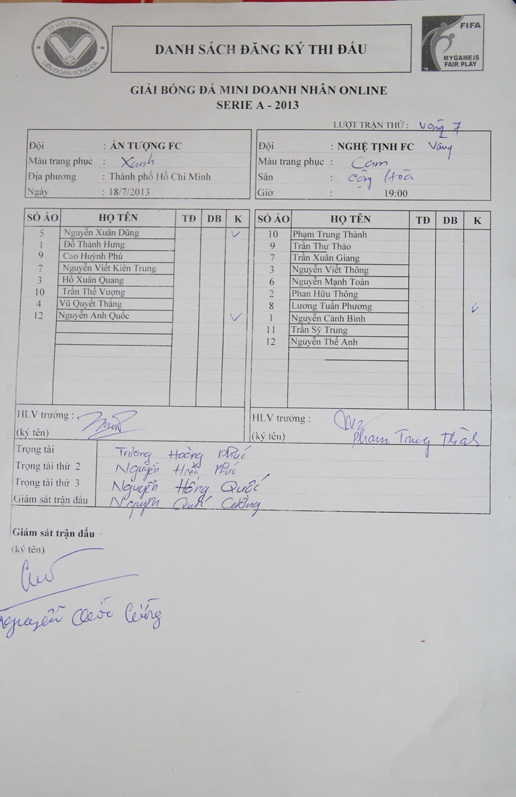 TP HỒ CHÍ MINH
LIÊN ĐOÀN BÓNG ĐÁ
DANH SÁCH ĐĂNG KÝ THI ĐẤU
FIFA
MY GAME IS
FAIR PLAY
GIẢI BÓNG ĐÁ MINI DOANH NHÂN ONLINE
SERIE A - 2013
LƯỢT TRẬN THỨ : Vòng 7
Đội : ẤN TƯỢNG FC
Màu trang phục : Xanh
Địa phương : Thành phố Hồ Chí Minh
Ngày : 18/7/2013
Đội : NGHỆ TỊNH FC Vàng
Màu trang phục : Cam
Sân : Cộng Hòa
Giờ : 19:00
SỐ ÁO HỌ TÊN TĐ DB K
5 Nguyễn Xuân Dũng
1 Đỗ Thành Hưng
9 Cao Huỳnh Phú
7 Nguyễn Viết Kiên Trung
3 Hồ Xuân Quang
10 Trần Thế Vượng
4 Vũ Quyết Thắng
12 Nguyễn Anh Quốc
SỐ ÁO HỌ TÊN TĐ DB K
10 Phạm Trung Thành
9 Trần Thư Thảo
7 Trần Xuân Giang
3 Nguyễn Viết Thông
6 Nguyễn Mạnh Toàn
2 Phan Hữu Thông
8 Lương Tuấn Phương
1 Nguyễn Cảnh Bình
11 Trần Sỹ Trung
12 Nguyễn Thế Anh
HLV trưởng :
(ký tên)
HLV trưởng :
(ký tên) Phạm Trung Thành
Trọng tài Trương Hoàng Phúc
Trọng tài thứ 2 Nguyễn Phúc
Trọng tài thứ 3 Nguyễn Hồng Quốc
Giám sát trận đấu Nguyễn Quốc Cường
Giám sát trận đấu
(ký tên)
Nguyễn Quốc Cường